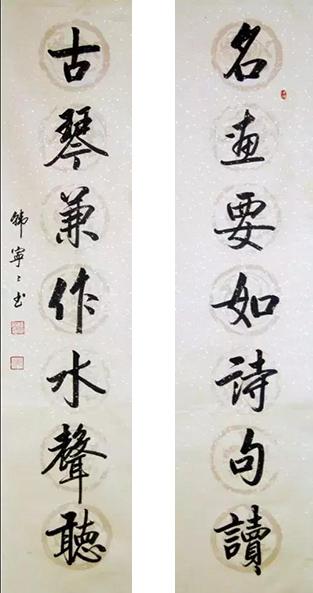 名畫要如詩句讀
古琴兼作水聲聽
韩寧寧书